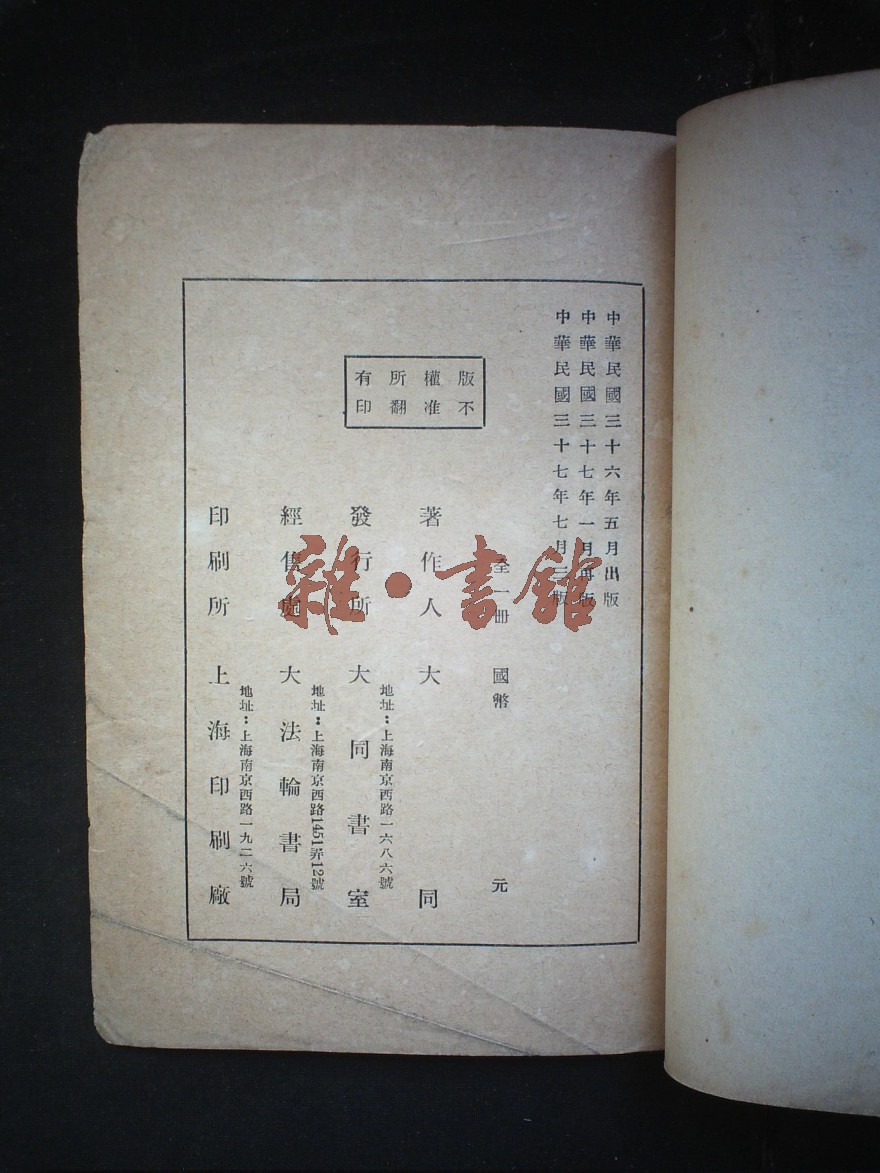 中華民國三十六年五月出版
中華民國三十七年一月再版
中華民國三十七年七月三版
版權所有
不准翻印
全一冊 國幣 元
著作人 大同
發行所 大同書室
地址：上海南京西路一六八六號
經售處 大法輪書局
地址：上海南京西路1451弄12號
印刷所 上海印刷廠
地址：上海南京西路一九二六號
雜·書館